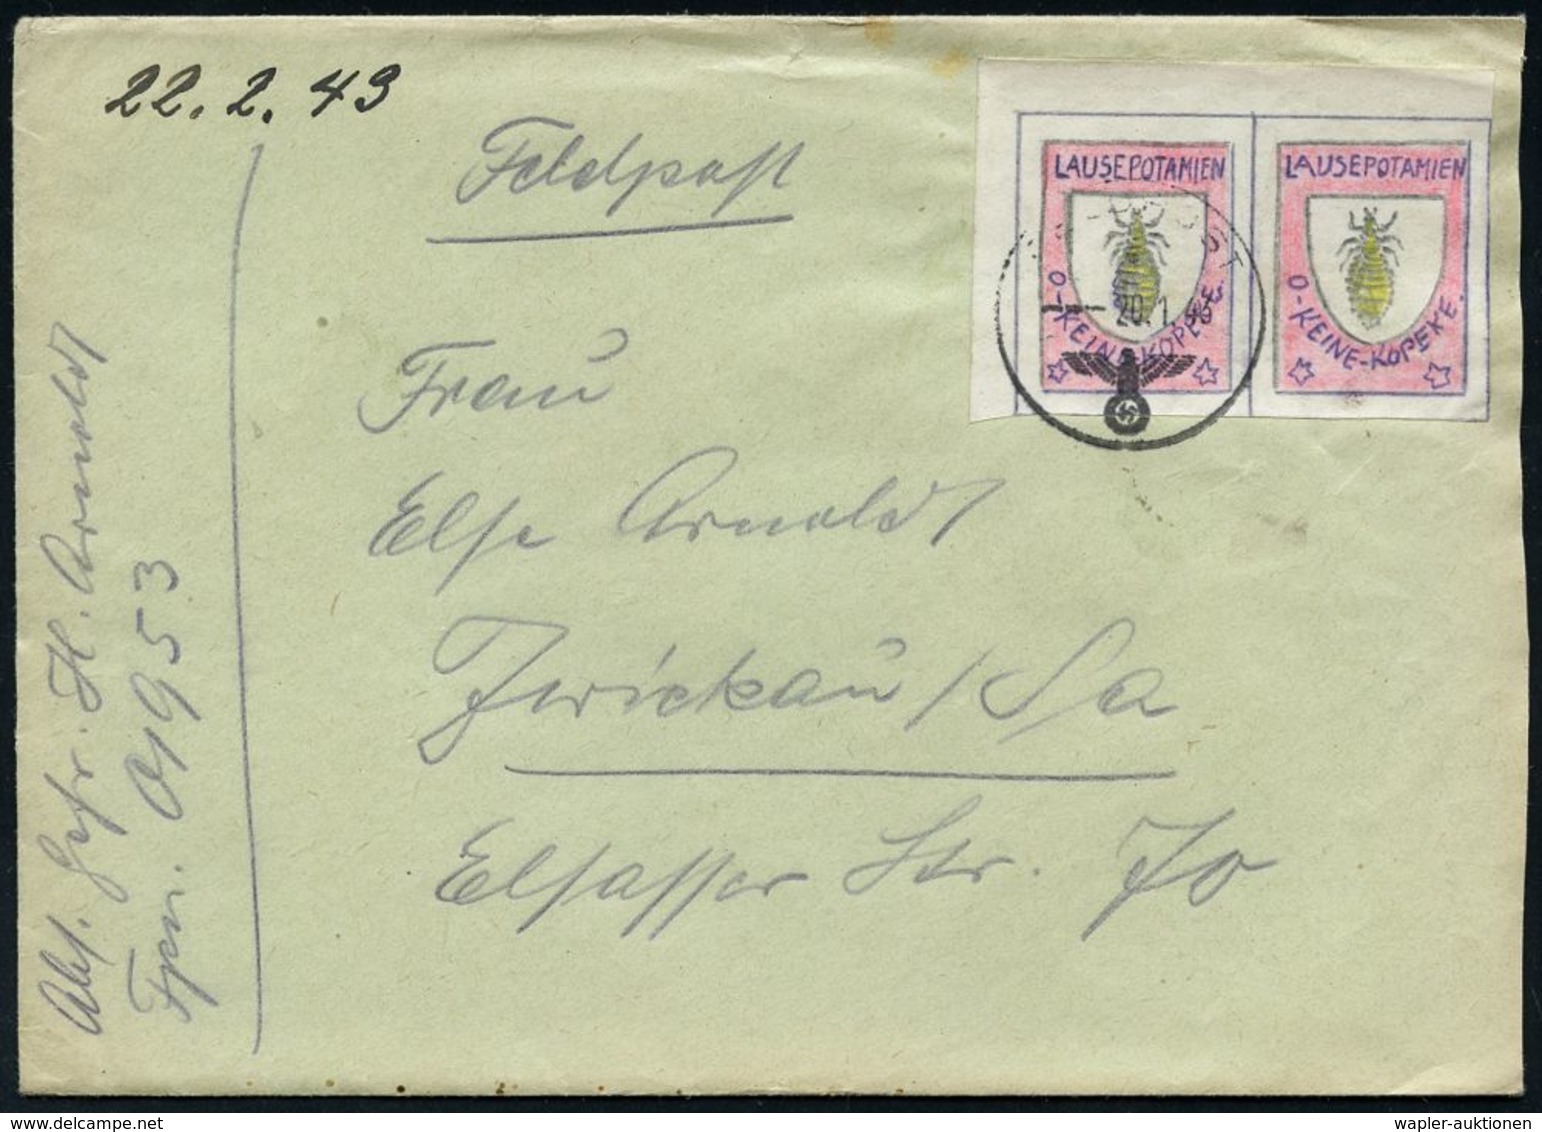 22. 2. 43
Feldpost
LAUSEPOTAMIEN
O-KEINE-KOPEKE.
LAUSEPOTAMIEN
O-KEINE-KOPEKE.
20.1.43
Frau
Else Arnoldt
Zwickau / Sa
Elsasser Str. 70
Abs. Gefr. H. Arnoldt
Fpn. 01953
wapler-auktionen